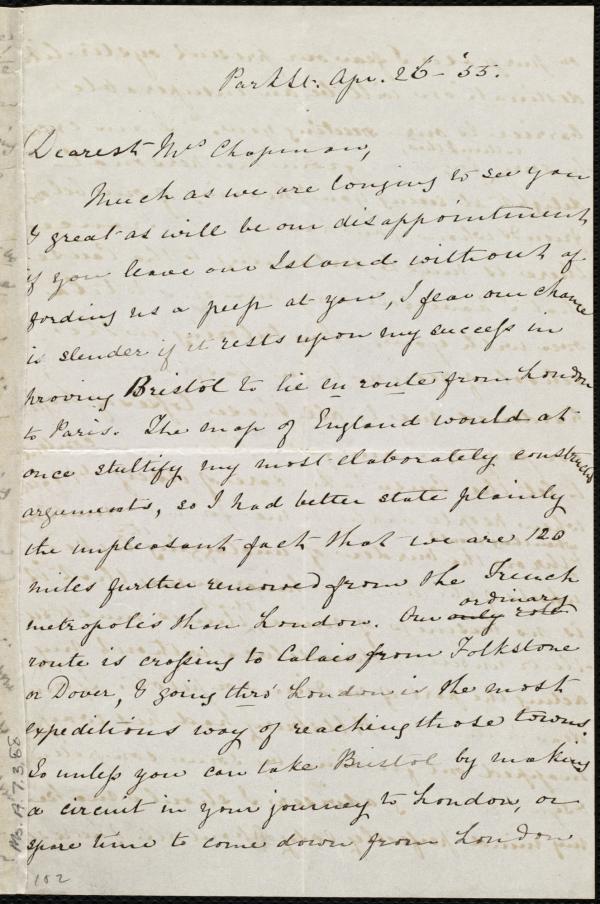 Park St. Apr. 26 - '55.
Dearest Mrs Chapman,
Much as we are longing to see you
& great as will be our disappointment
if you leave our Island without af
fording us a peep at you, I fear our chance
is slender if it rests upon my success in
proving Bristol to lie en route from London
to Paris. The map of England would at
once stultify my most elaborately constructed
arguments, so I had better state plainly
the unpleasant fact that we are 120
miles further removed from the French
metropolis than London. Our only rout ordinary
route is crossing to Calais from Folkstone
or Dover, & going thro' London is the most
expeditious way of reaching those towns.
So unless you can take Bristol by making
a circuit in your journey to London, or
spare time to come down from London
Ms. A. 7. 3. 68
102